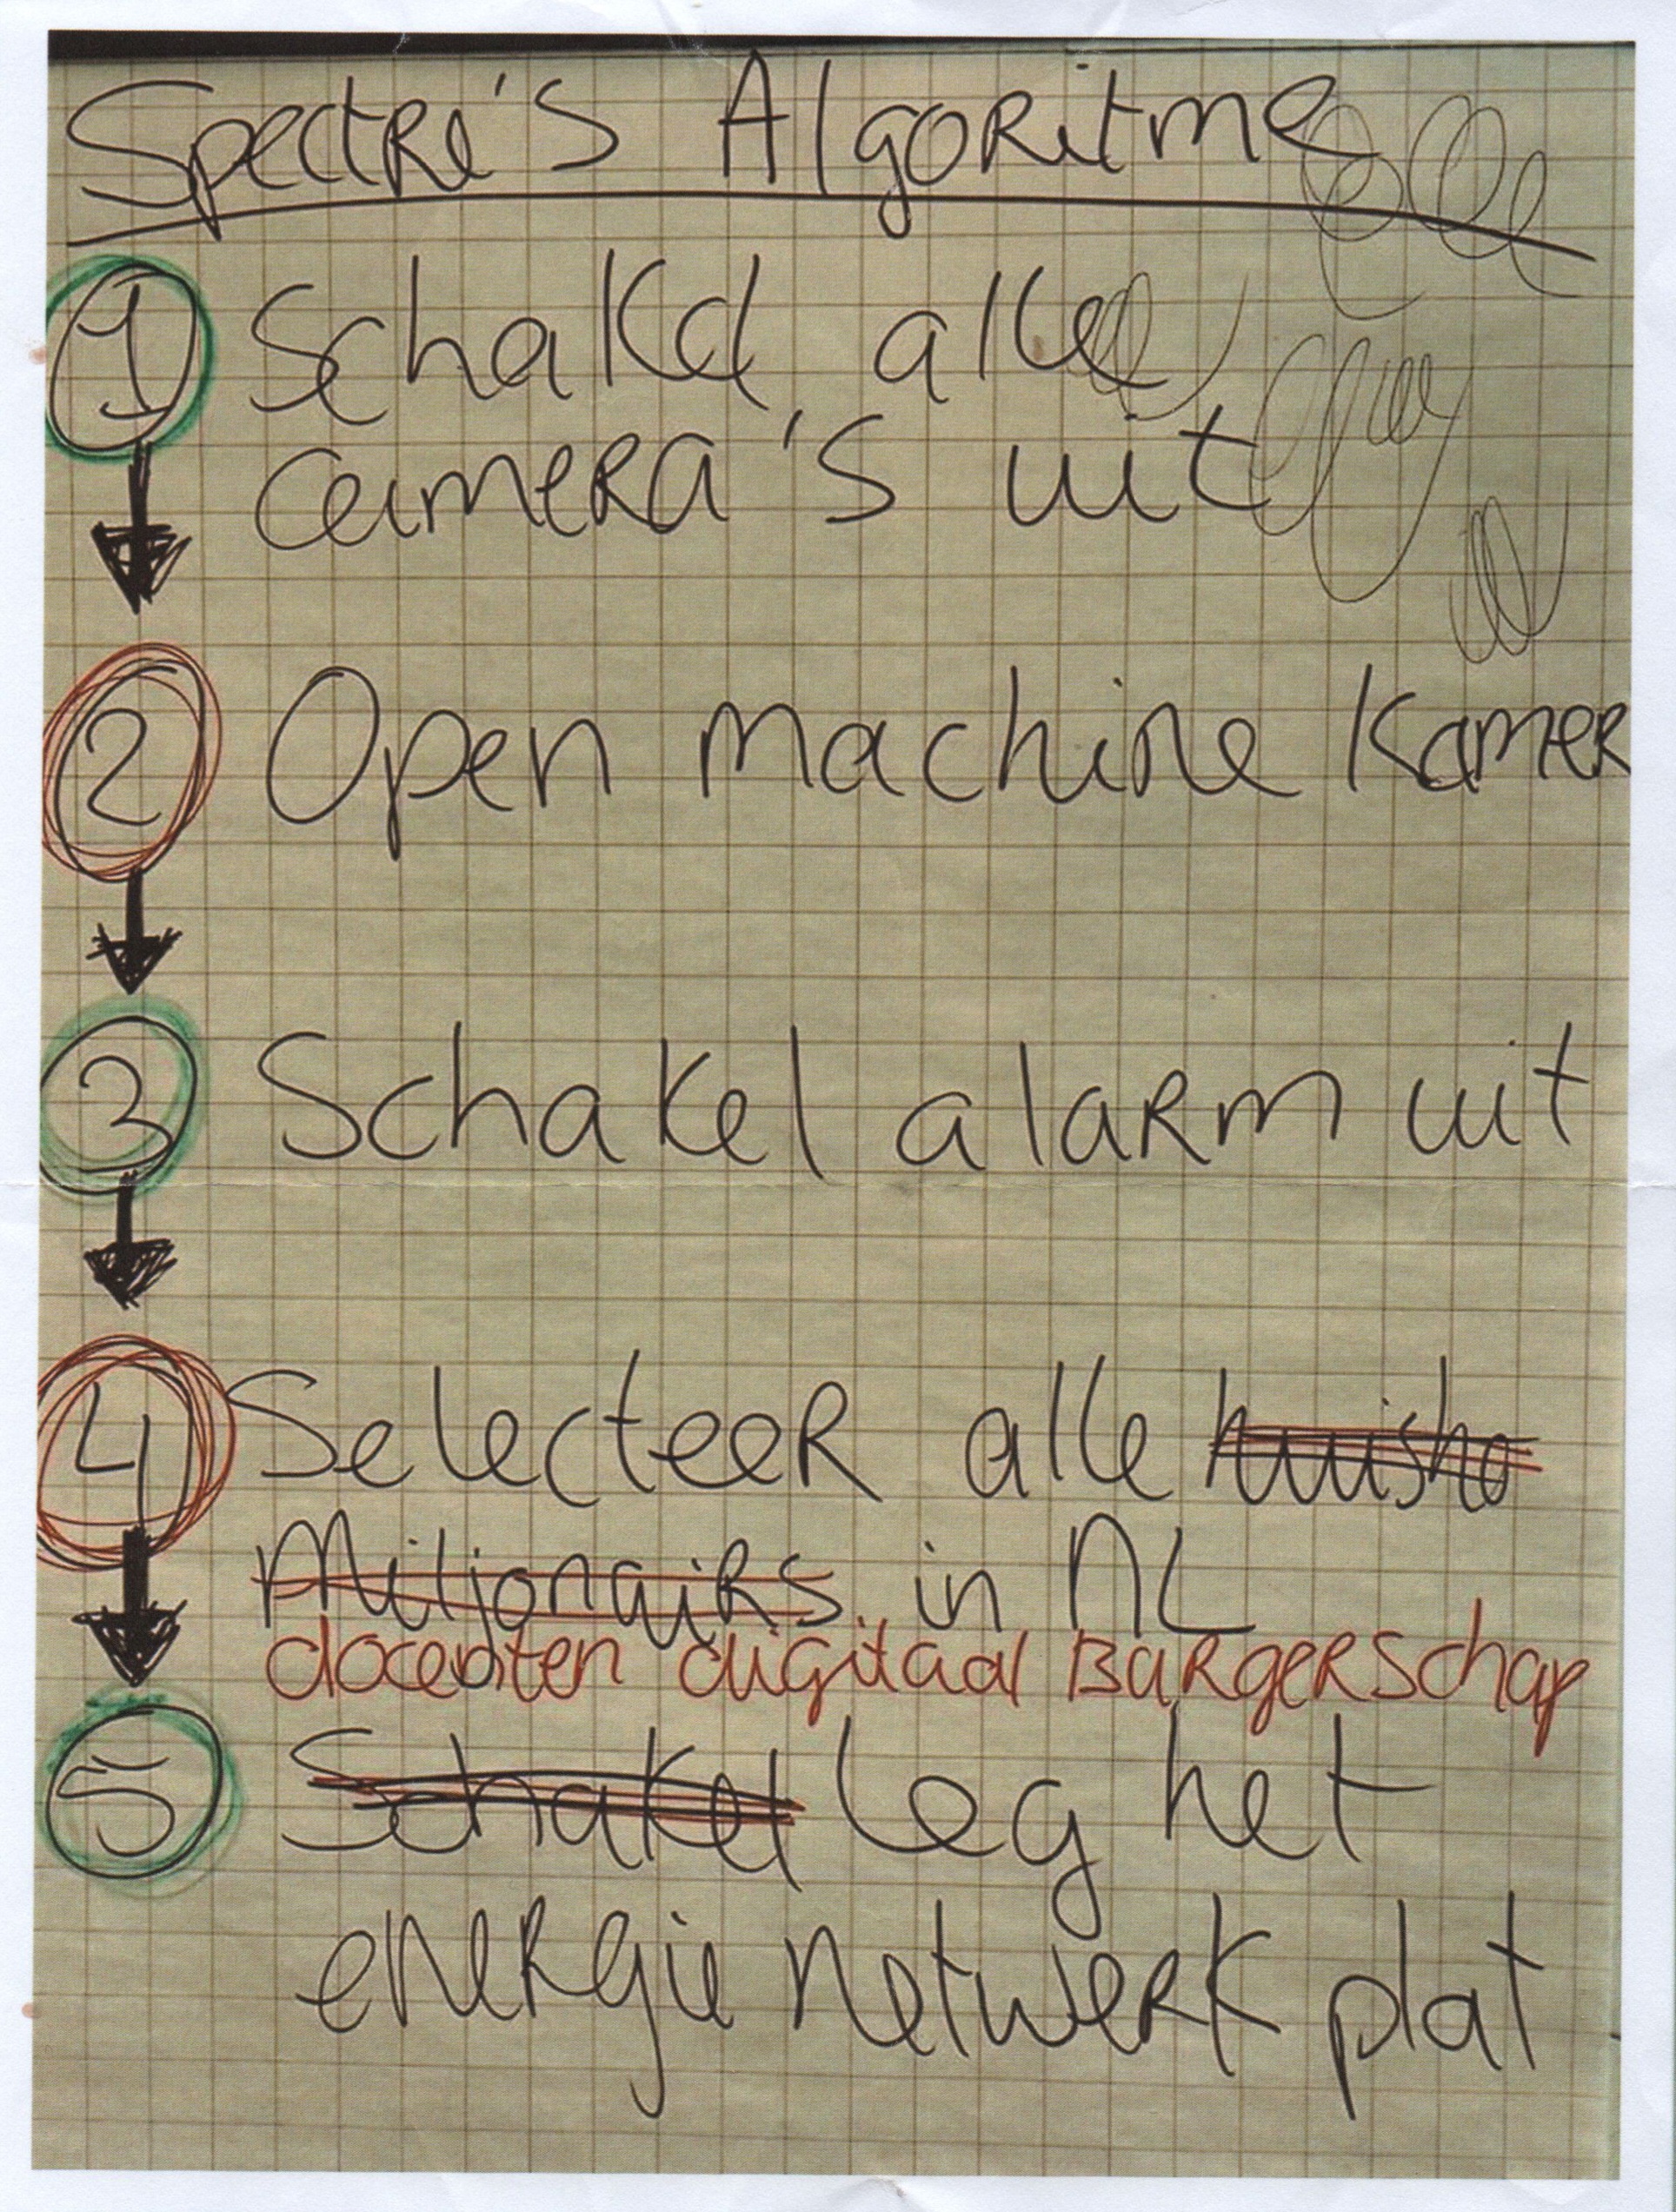 Spectre's Algoritme
1 Schakel alle
camera's uit
2 Open machine kamer
3 Schakel alarm uit
4 Selecteer alle huisho
Miljonairs in NL
docenten digitaal Burgerschap
5 Schakel leg het
energie netwerk plat